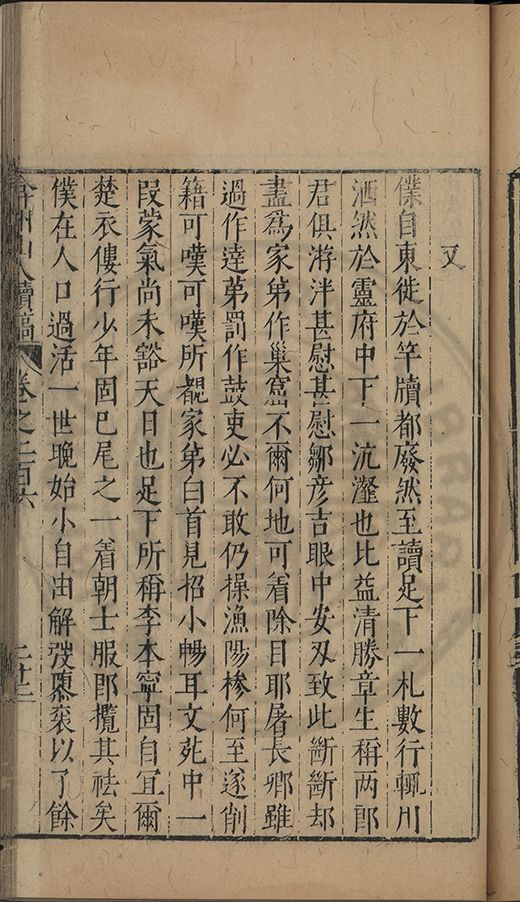 又
僕自東徙於竿牘都廢然至讀足下一札數行輒川
洒然於靈府中下一沆瀣也比益清勝章生稱两郎
君俱游泮甚慰甚慰鄒彦吉眼中安刄致此斷斷却
盡爲家第作巢窟不爾何地可着除目耶屠長卿雖
過作達第罰作鼓吏必不敢仍操漁陽摻何至逐削
籍可嘆可嘆所覩家第白首見招小暢耳文苑中一
叚蒙氣尚未豁天日也足下所稱李本寧固自宜爾
楚衣僂行少年固巳尾之一着朝士服郎攬其袪矣
僕在人口過活一世晚始小自由解弢隳袠以了餘
弇州山人續稿 卷之二百六 二十二